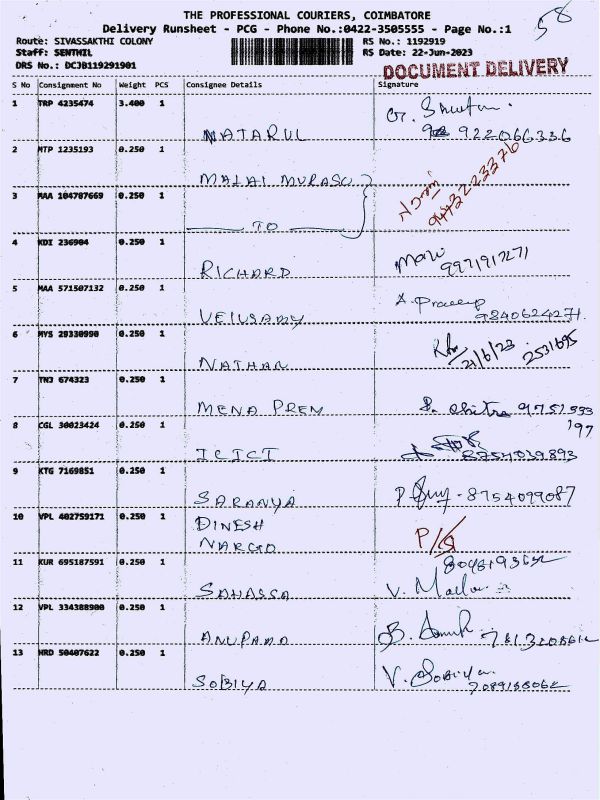 58
THE PROFESSIONAL COURIERS, COIMBATORE
Delivery Runsheet - PCG - Phone No.:0422-3505555 - Page No.:1
Route: SIVASSAKTHI COLONY RS No.: 1192919
Staff: SENTHIL RS Date: 22-Jun-2023
DRS No.: DCJB119291901
DOCUMENT DELIVERY
S No Consignment No Weight PCS Consignee Details Signature
1 TRP 4235474 3.400 1
NATARUL 922066336
2 MTP 1235193 0.250 1
MALAI MURASU 9443223376
3 MAA 104787669 0.250 1
TO
4 KDI 236904 0.250 1
RICHARD
5 MAA 571507132 0.250 1 A. Pradeep
VEILUSAMY 9840624271.
6 MYS 29330990 0.250 1
NATHAN 21/6/23 2531695
7 TNJ 674323 0.250 1
MENA PREM 9751553
8 CGL 30023424 0.250 1 197
ICICI 8754039893
9 KTG 7169851 0.250 1
SARANYA 8754099087
10 VPL 402759171 0.250 1 DINESH
NARGO
11 KUR 695187591 0.250 1
SAHASSA V.
12 VPL 334388900 0.250 1
ANUPAMA B.
13 HRD 50407622 0.250 1
SOBIYA V. Sobiya